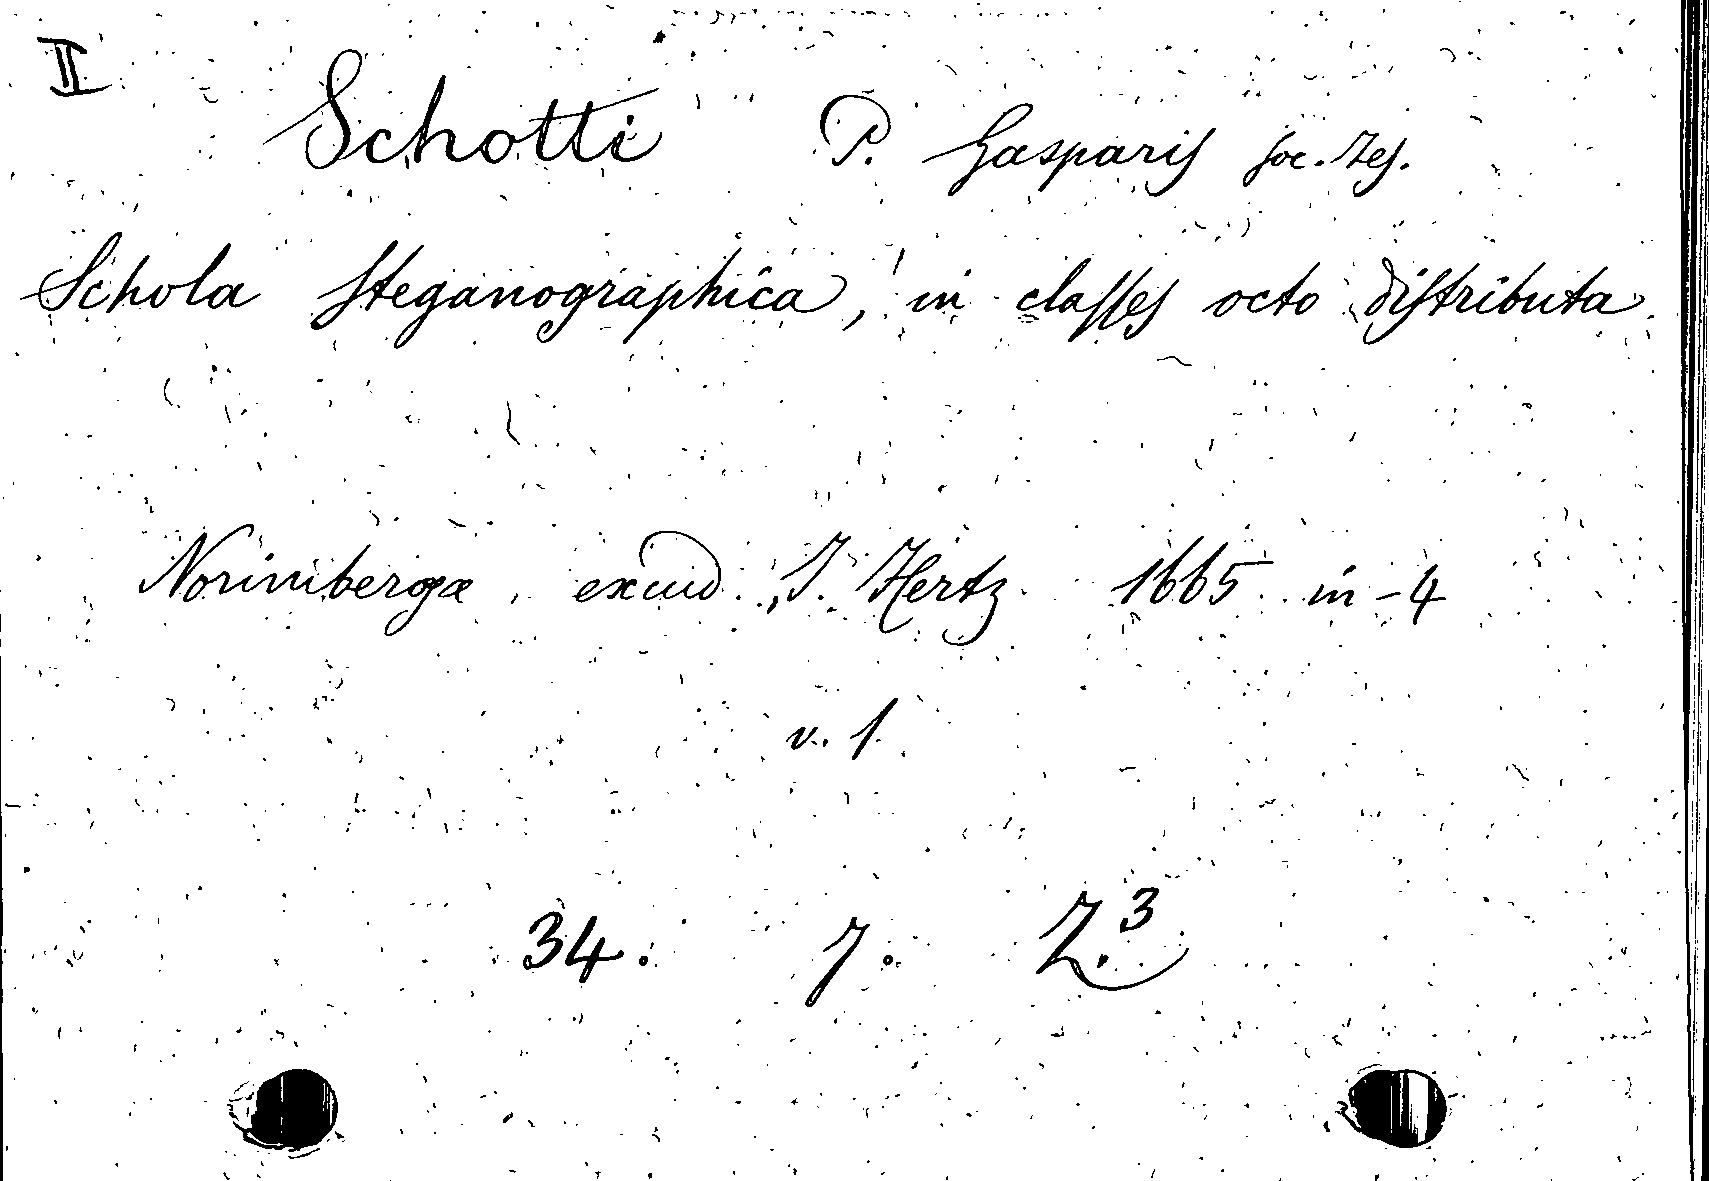 II
Schotti P. Gasparis soc. Jes.
Schola steganographica, in classes octo distributa.
Norimbergæ, excud. J. Hertz 1665 in-4
v. 1
34. 7. Z.³